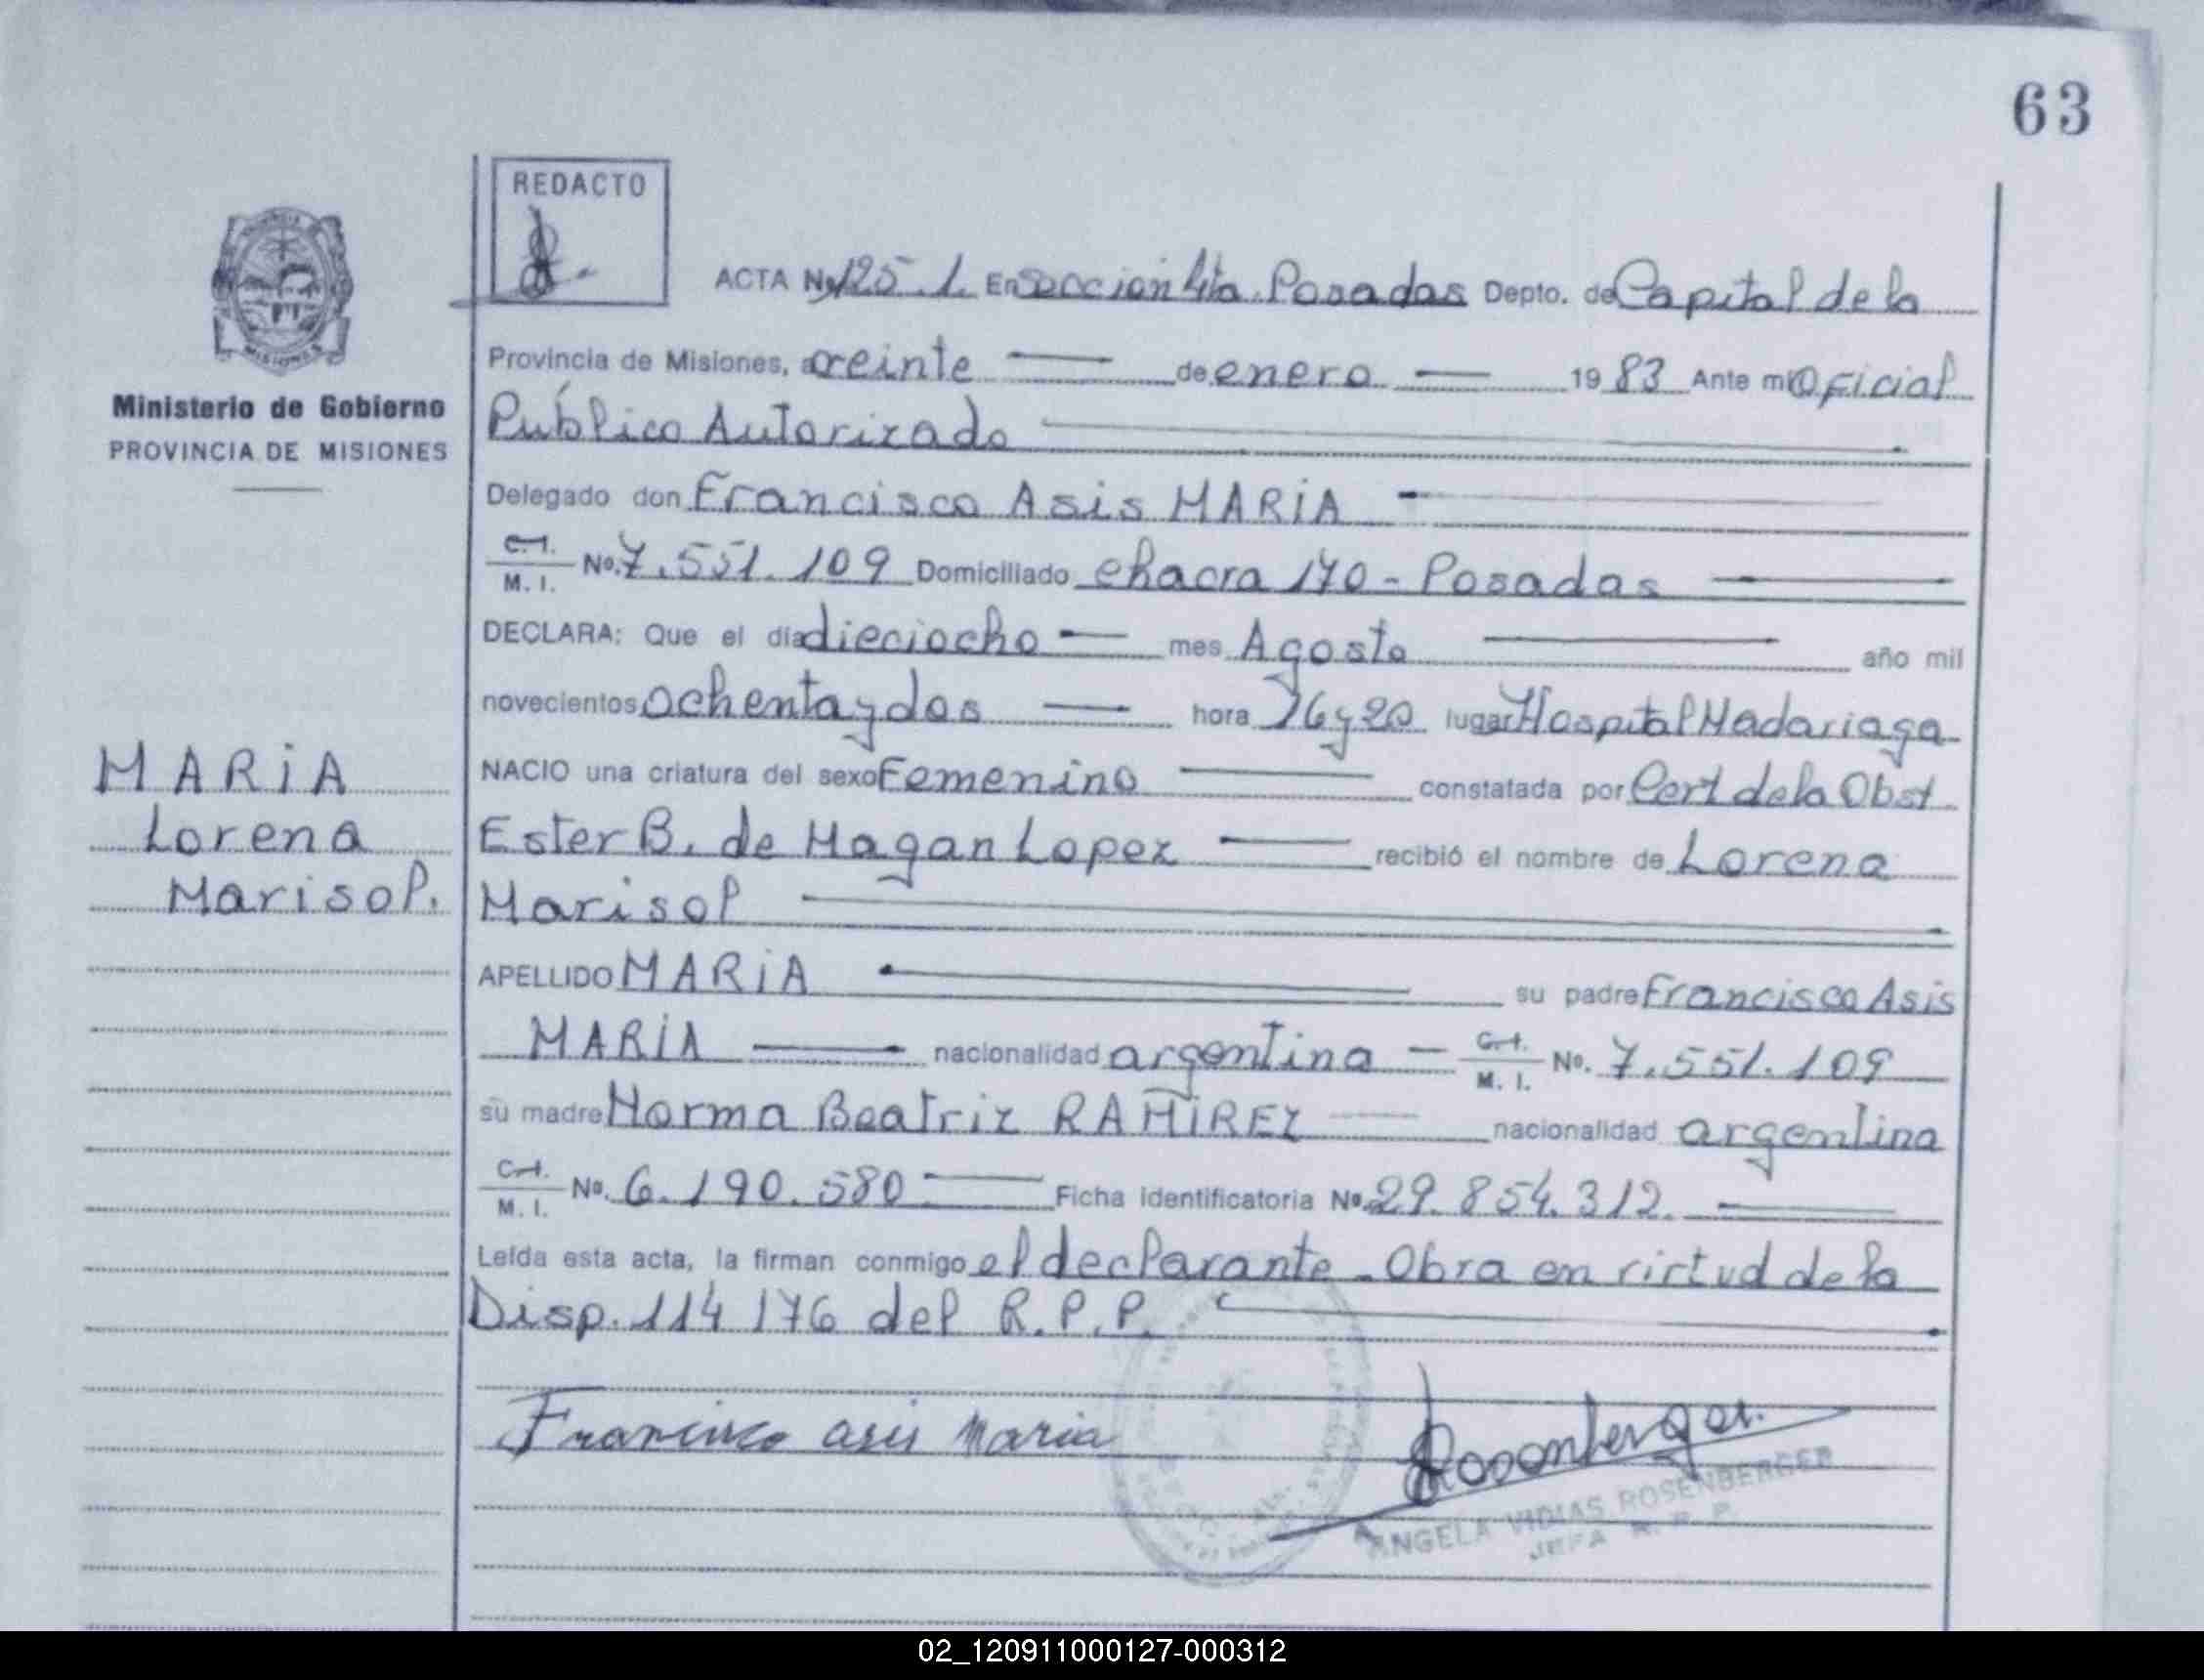 63
REDACTO
ACTA No 125.1. En Seccion 4ta. Posadas Depto. de Capital de la
Provincia de Misiones, a veinte de enero 1983 Ante mi Oficial
Público Autorizado
Ministerio de Gobierno
PROVINCIA DE MISIONES
Delegado don Francisco Asis MARIA
C.I. M. I. No. 7.551.109 Domiciliado chacra 170 - Posadas
DECLARA: Que el día dieciocho mes Agosto año mil
novecientos ochenta y dos hora 16 y 20 lugar Hospital Madariaga
MARIA
Lorena
Marisol.
NACIO una criatura del sexo Femenino constatada por Cert de la Obst
Ester B. de Magan Lopez recibió el nombre de Lorena
Marisol
APELLIDO MARIA su padre Francisco Asis
MARIA nacionalidad argentina C.I. M. I. No. 7.551.109
su madre Norma Beatriz RAMIREZ nacionalidad argentina
C.I. M. I. No. 6.190.580 Ficha identificatoria No. 29.854.312.
Leída esta acta, la firman conmigo el declarante - Obra en virtud de la
Disp. 114/76 del R.P.P.
Francisco asis Maria
Rosenberger.
ANGELA VIDIAS ROSENBERGER
JEFA R. P. P.
02_120911000127-000312